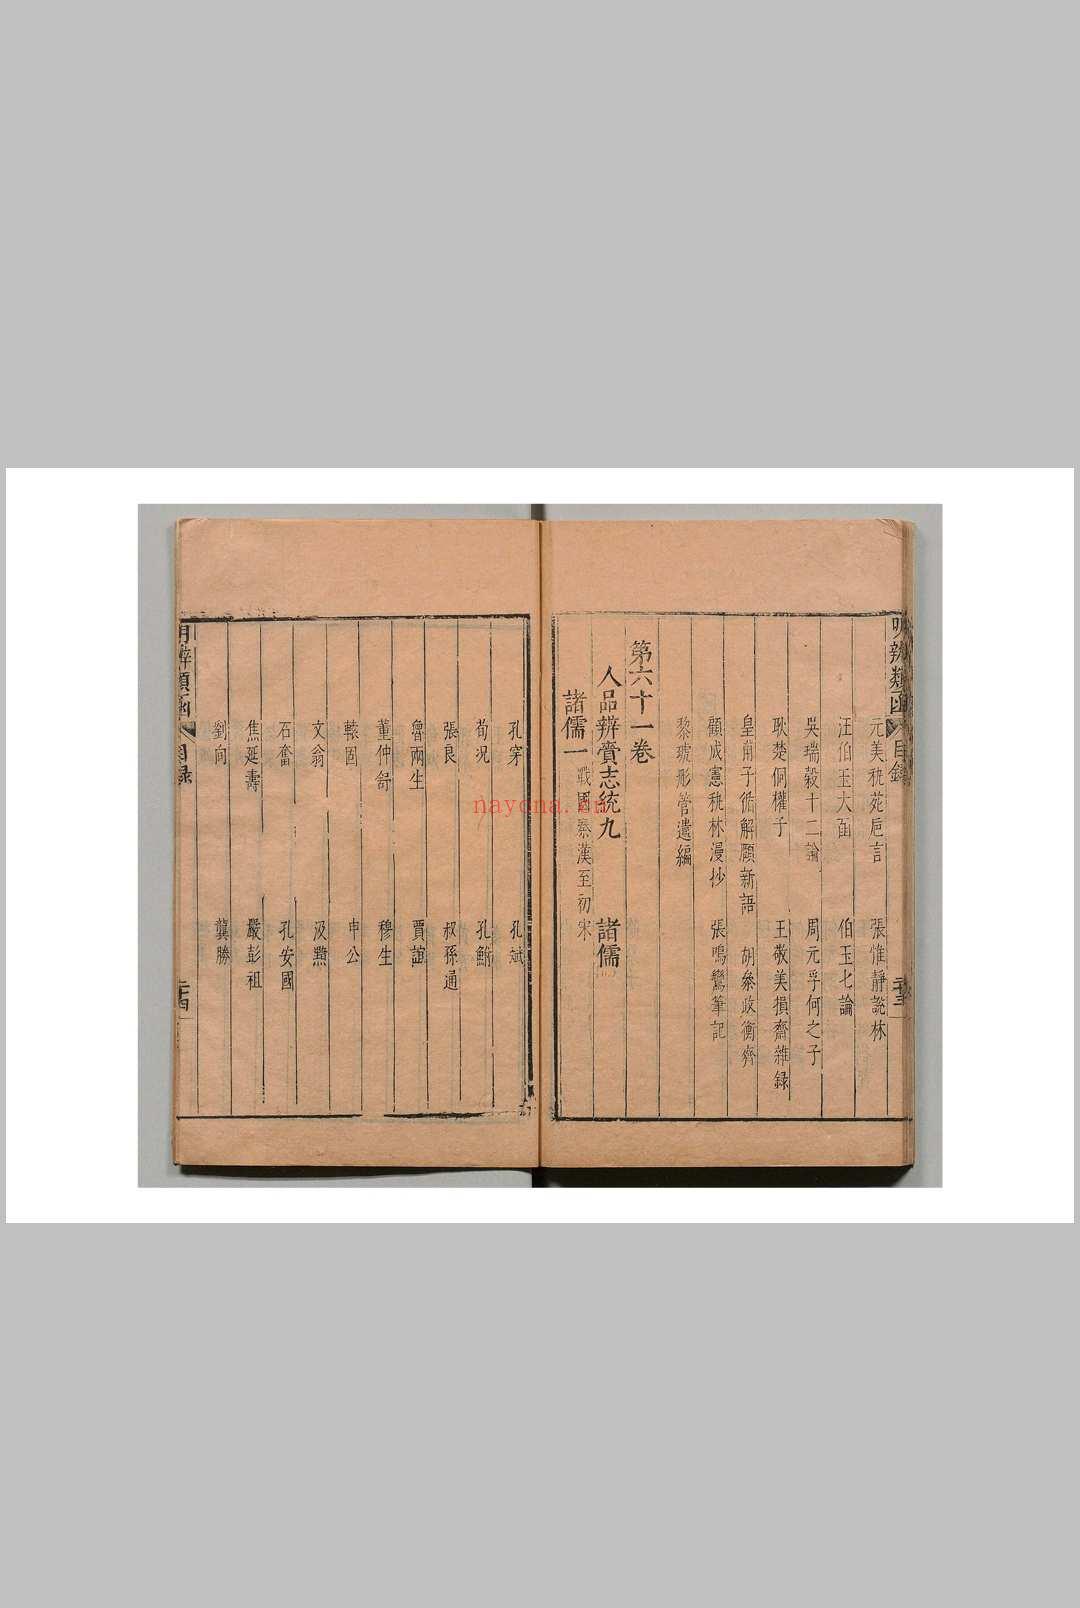 明辨類函 目錄 二十三
元美秇苑巵言 張惟靜說林
汪伯玉大函 伯玉七論
吳瑞榖十二論 周元孚何之子
耿楚侗權子 王敬美損齋雜録
皇甫子循解頤新語 胡叅政衡齊
顧成憲秇林漫抄 張鳴鸞筆記
黎琥彤管遺編
第六十一卷
人品辨賞志統九 諸儒
諸儒一 戰國秦漢至初宋
孔穿 孔斌
荀況 孔鮒
張良 叔孫通
魯兩生 賈誼
董仲舒 穆生
轅固 申公
文翁 汲黯
石奮 孔安國
焦延壽 嚴彭祖
劉向 龔勝
明辨類函 目録 二十四
nayona.cn